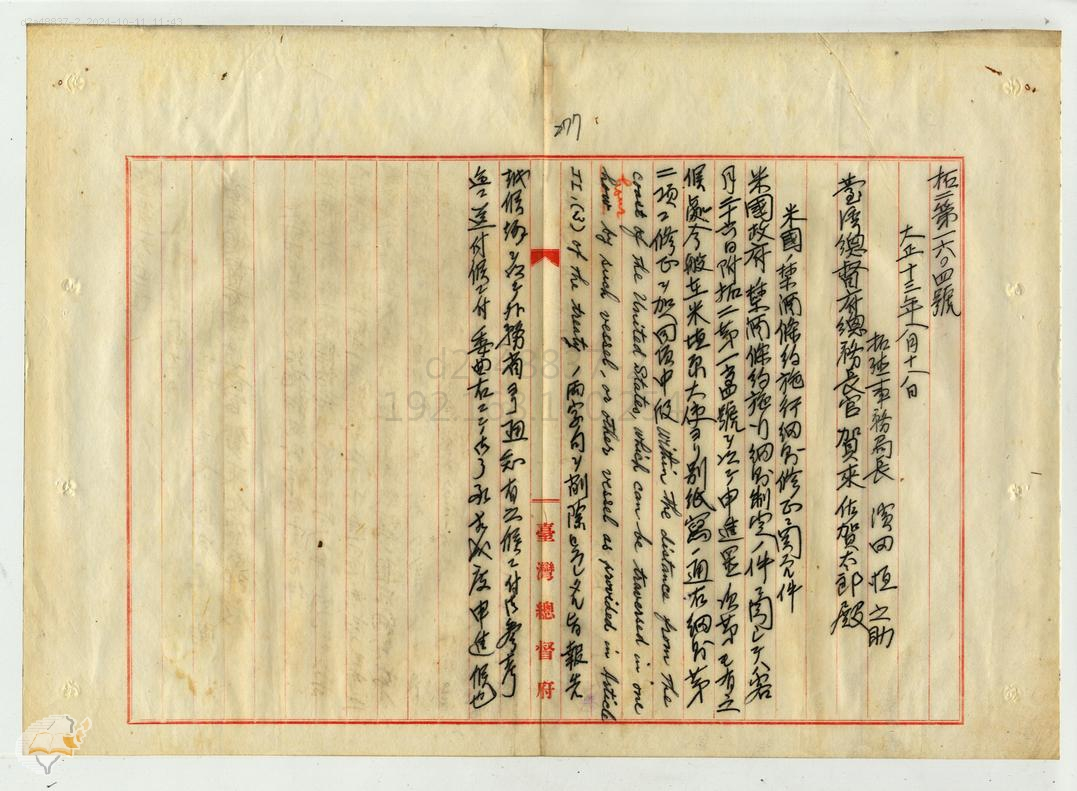 277
拓二第一六〇四號
大正十三年一月十一日
拓殖事務局長 濱田恒之助
臺灣總督府總務長官賀來佐賀太郎殿
米國ノ禁酒條約施行細則修正ニ關スル件
米國政府ノ禁酒條約施行細則制定ノ件ニ關シテハ客
月二十六日附拓二第一 號ヲ以テ申進置 次第モ有之
候處今般在米埴原大使ヨリ別紙寫ノ通右細則第
二項ニ修正ヲ加ヘ同項中 within the distance from the
coast of the United States, which can be traversed in one
hour by such vessel, or other vessel as provided in Article
II, (3) of the treaty, ノ兩字句ヲ削除 旨報告
越候 ヲ以テ外務省ヨリ通知有之候ニ付御參考
迄ニ送付候ニ付委曲右ニテ御了承 度申進候也
臺灣總督府